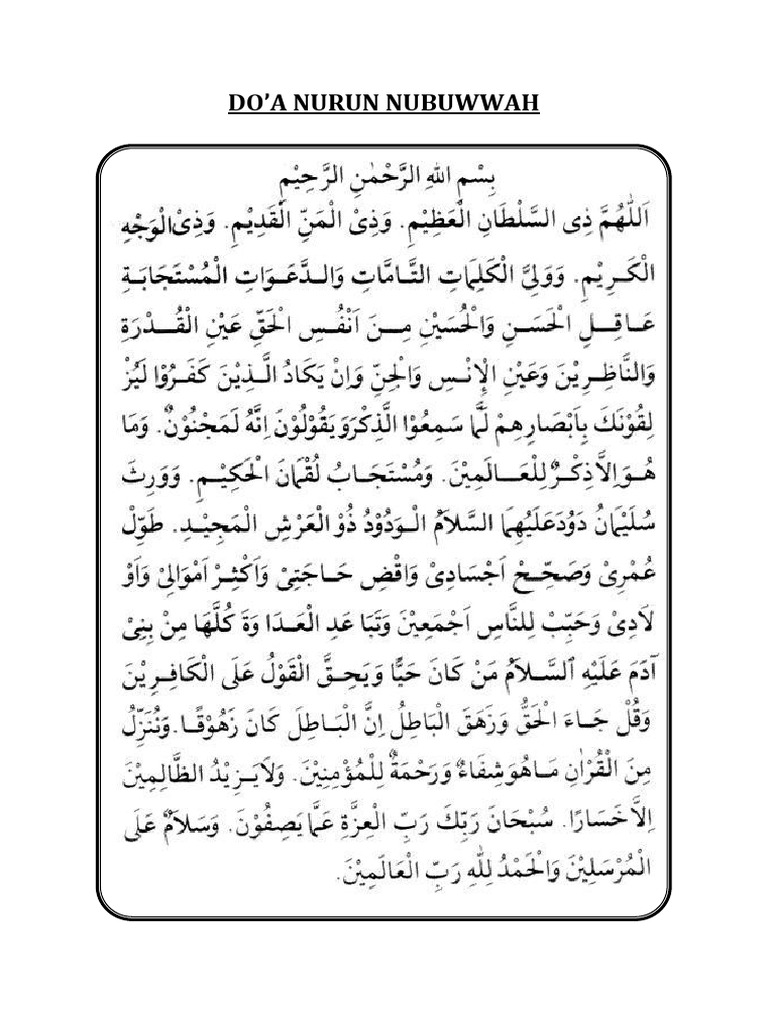 DO’A NURUN NUBUWWAH
بِسْمِ اللهِ الرَّحْمٰنِ الرَّحِيْمِ
اَللّٰهُمَّ ذِى السُّلْطَانِ الْعَظِيْمِ. وَذِى الْمَنِّ الْقَدِيْمِ. وَذِى الْوَجْهِ
الْكَرِيْمِ. وَوَلِيِّ الْكَلِمَاتِ التَّامَّاتِ وَالدَّعَوَاتِ الْمُسْتَجَابَةِ
عَاقِلِ الْحَسَنِ وَالْحُسَيْنِ مِنَ اَنْفُسِ الْحَقِّ عَيْنِ الْقُدْرَةِ
وَالنَّاظِرِيْنَ وَعَيْنِ الْإِنْسِ وَالْجِنِّ وَاِنْ يَكَادُ الَّذِيْنَ كَفَرُوْا لَيُزْ
لِقُوْنَكَ بِاَبْصَارِهِمْ لَمَّا سَمِعُوْا الذِّكْرَ وَيَقُوْلُوْنَ اِنَّهُ لَمَجْنُوْنٌ. وَمَا
هُوَ اِلاَّ ذِكْرٌ لِلْعَالَمِيْنَ. وَمُسْتَجَابُ لُقْمَانَ الْحَكِيْمِ. وَوَرِثَ
سُلَيْمَانُ دَوُدَ عَلَيْهِمَا السَّلاَمُ الْوَدُوْدُ ذُوْ الْعَرْشِ الْمَجِيْدِ. طَوِّلْ
عُمْرِىْ وَصَحِّحْ اَجْسَادِىْ وَاقْضِ حَاجَتِىْ وَاَكْثِرْ اَمْوَالِىْ وَاَوْ
لَادِىْ وَحَبِّبْ لِلنَّاسِ اَجْمَعِيْنَ وَتَبَا عَدِ الْعَدَا وَةَ كُلَّهَا مِنْ بَنِىْ
آدَمَ عَلَيْهِ السَّلاَمُ مَنْ كَانَ حَيًّا وَيَحِقَّ الْقَوْلُ عَلَى الْكَافِرِيْنَ
وَقُلْ جَاءَ الْحَقُّ وَزَهَقَ الْبَاطِلُ اِنَّ الْبَاطِلَ كَانَ زَهُوْقًا. وَنُنَزِّلُ
مِنَ الْقُرْاٰنِ مَا هُوَ شِفَاءٌ وَرَحْمَةٌ لِلْمُؤْمِنِيْنَ. وَلاَ يَزِيْدُ الظَّالِمِيْنَ
اِلاَّ خَسَارًا. سُبْحَانَ رَبِّكَ رَبِّ الْعِزَّةِ عَمَّا يَصِفُوْنَ. وَسَلاَمٌ عَلَى
الْمُرْسَلِيْنَ وَالْحَمْدُ لِلّٰهِ رَبِّ الْعَالَمِيْنَ.